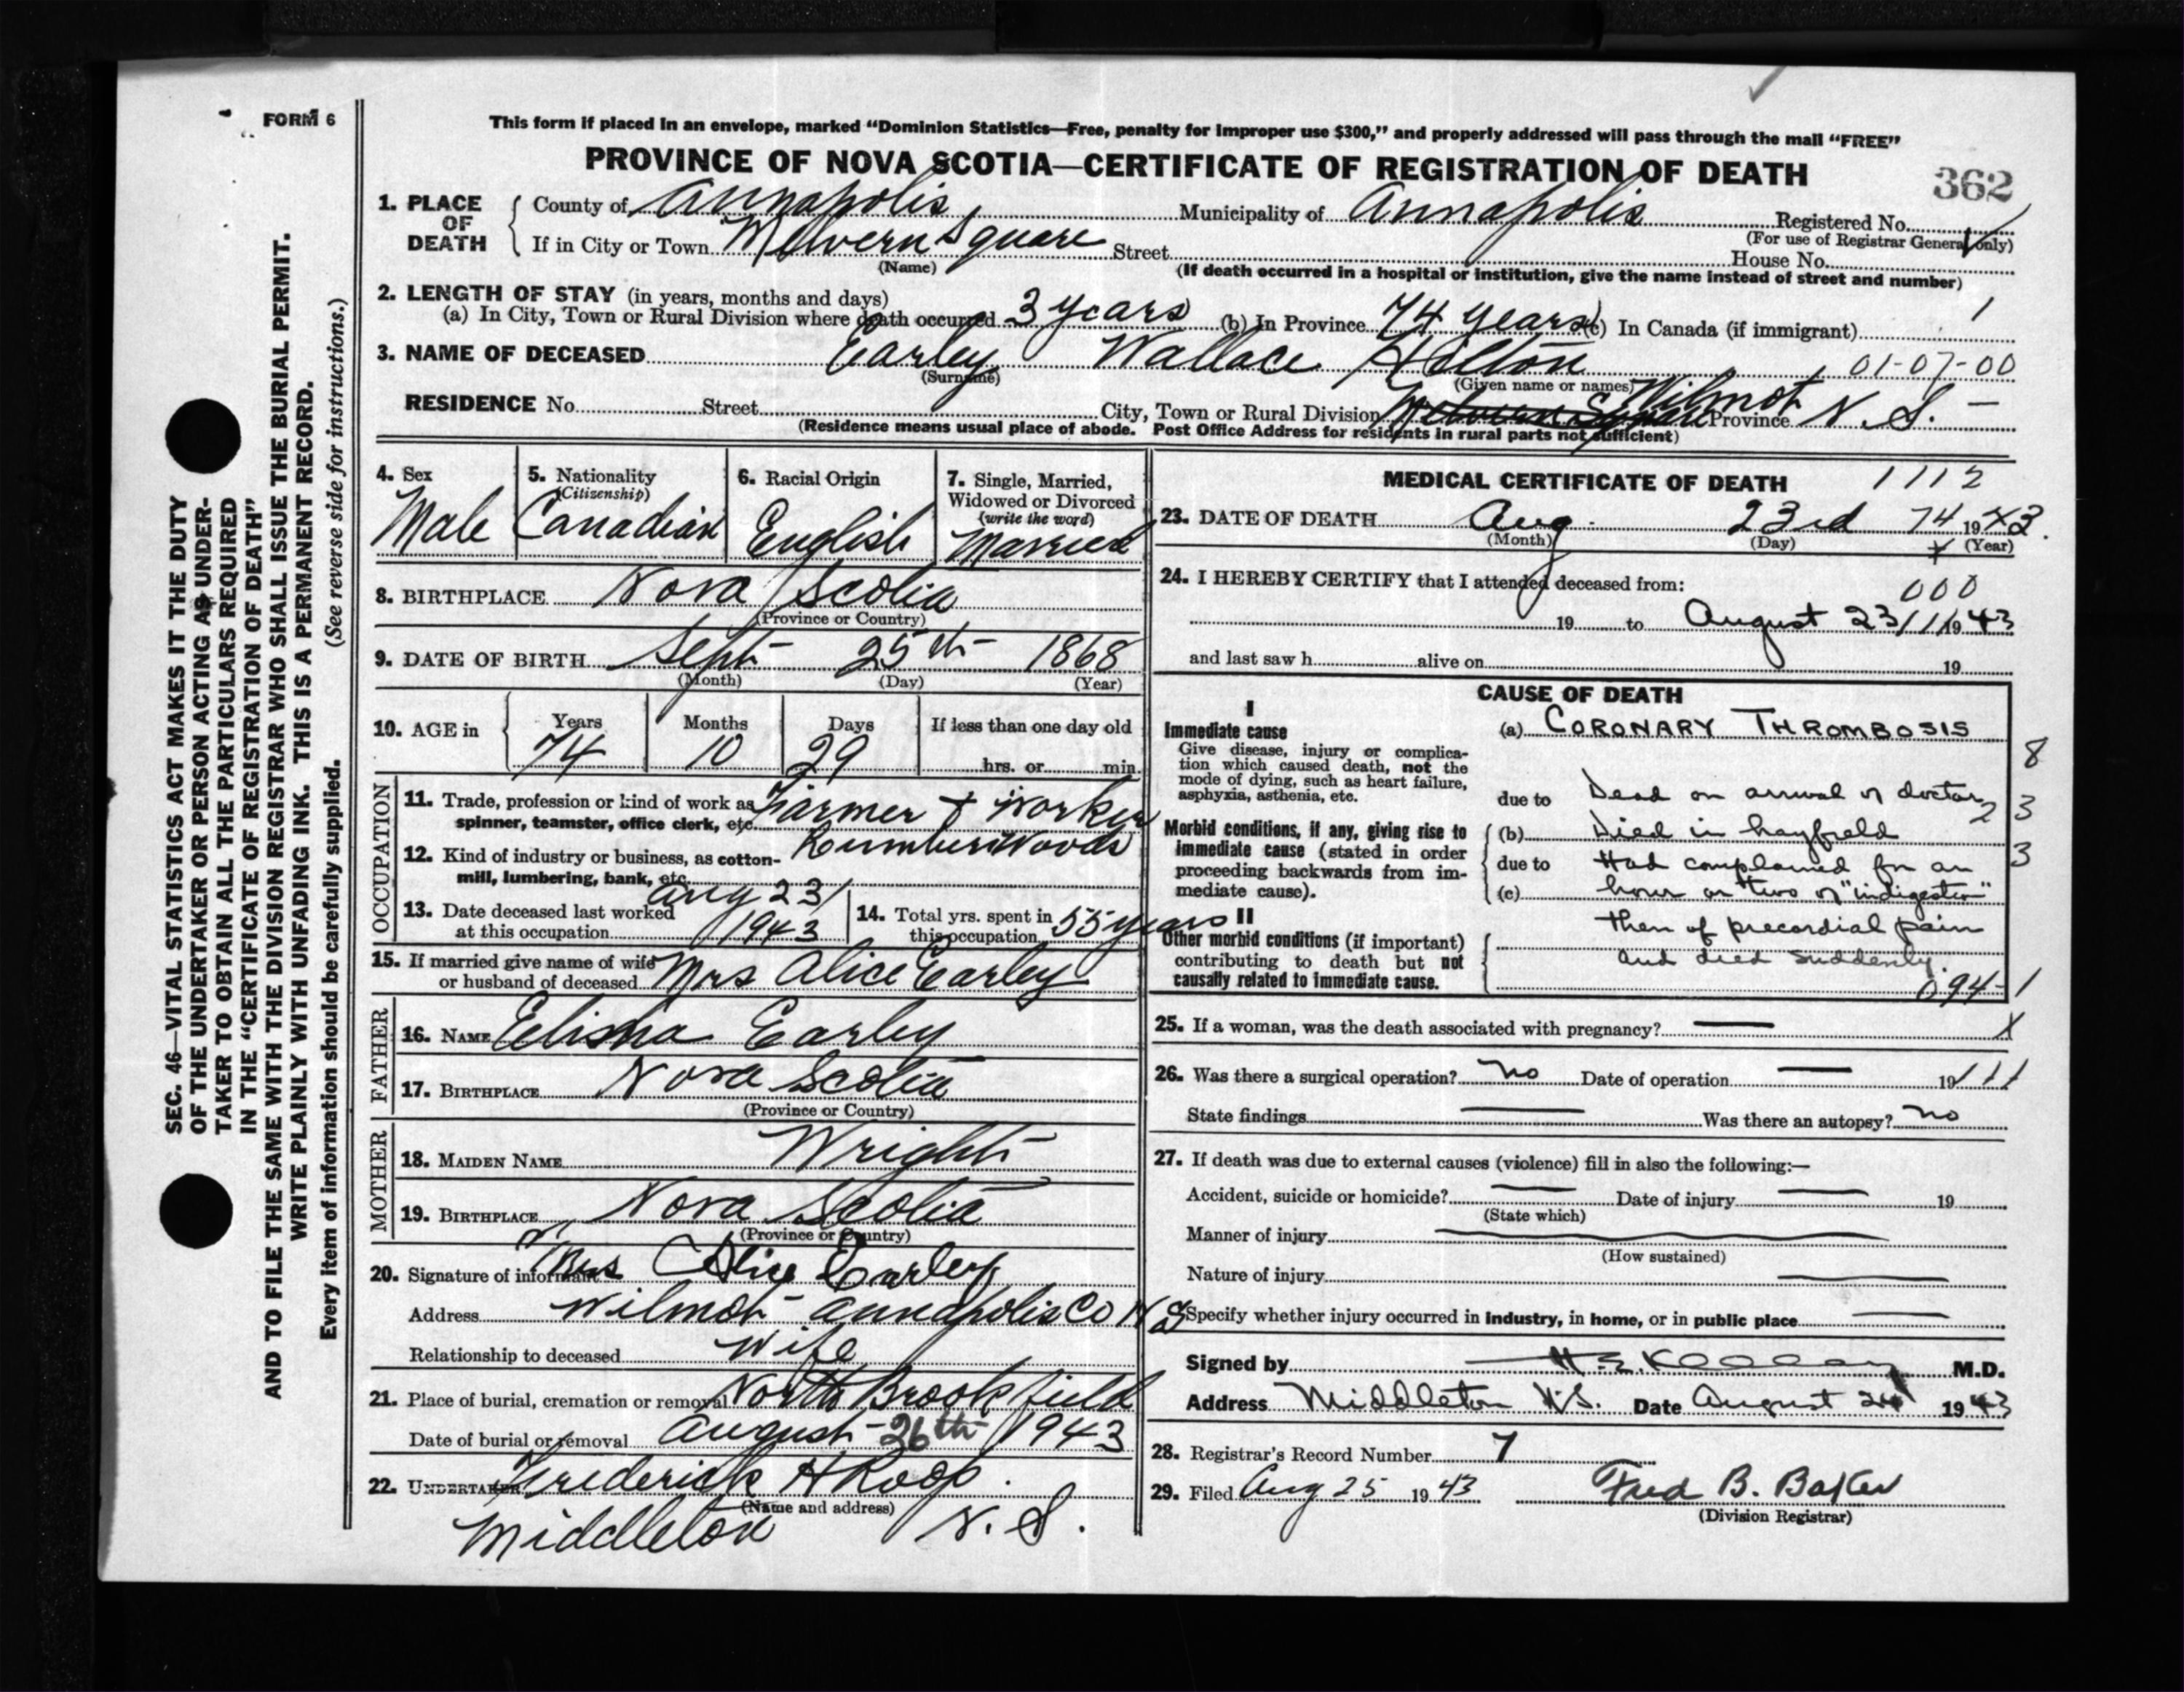 FORM 6
This form if placed in an envelope, marked “Dominion Statistics—Free, penalty for improper use $300,” and properly addressed will pass through the mail “FREE”
PROVINCE OF NOVA SCOTIA—CERTIFICATE OF REGISTRATION OF DEATH
362
1. PLACE OF DEATH { County of Annapolis Municipality of Annapolis Registered No.
(For use of Registrar General only)
If in City or Town Melvern Square Street House No.
(Name) (If death occurred in a hospital or institution, give the name instead of street and number)
2. LENGTH OF STAY (in years, months and days)
(a) In City, Town or Rural Division where death occurred 3 years (b) In Province 74 years (c) In Canada (if immigrant) 1
3. NAME OF DECEASED Earley Wallace 01-07-00
(Surname) (Given name or names)
RESIDENCE No. Street City, Town or Rural Division Melvern Square Wilmot Province N. S. —
(Residence means usual place of abode. Post Office Address for residents in rural parts not sufficient)
4. Sex
Male
5. Nationality
(Citizenship)
Canadian
6. Racial Origin
English
7. Single, Married, Widowed or Divorced
(write the word)
Married
8. BIRTHPLACE Nova Scotia
(Province or Country)
9. DATE OF BIRTH Sept 25th 1868
(Month) (Day) (Year)
10. AGE in Years Months Days If less than one day old
74 10 29 hrs. or min.
OCCUPATION
11. Trade, profession or kind of work as Farmer + Worker
spinner, teamster, office clerk, etc.
12. Kind of industry or business, as cotton- Lumber Woods
mill, lumbering, bank, etc.
13. Date deceased last worked Aug 23/
at this occupation 1943
14. Total yrs. spent in
this occupation 55 years
15. If married give name of wife
or husband of deceased Mrs Alice Earley
FATHER
16. NAME Elisha Earley
17. BIRTHPLACE Nova Scotia
(Province or Country)
MOTHER
18. MAIDEN NAME Wright
19. BIRTHPLACE Nova Scotia
(Province or Country)
20. Signature of informant Mrs Alice Earley
Address Wilmot Annapolis Co N S
Relationship to deceased Wife
21. Place of burial, cremation or removal North Brookfield
Date of burial or removal August 26th 1943
22. UNDERTAKER Frederick H Roop.
(Name and address)
Middleton N. S.
MEDICAL CERTIFICATE OF DEATH 1112
23. DATE OF DEATH Aug. 23rd 74 1943.
(Month) (Day) (Year)
24. I HEREBY CERTIFY that I attended deceased from:
000
19 to August 23/ 1943
and last saw h alive on 19
CAUSE OF DEATH
I
Immediate cause
Give disease, injury or complication which caused death, not the mode of dying, such as heart failure, asphyxia, asthenia, etc.
(a) CORONARY THROMBOSIS
8
due to Dead on arrival of doctor
2 3
Morbid conditions, if any, giving rise to immediate cause (stated in order proceeding backwards from immediate cause).
(b) Died in hayfield
3
due to Had complained for an
(c) hour or two of "indigestion"
II
then of precordial pain
Other morbid conditions (if important) contributing to death but not causally related to immediate cause.
and died suddenly.
094-1
25. If a woman, was the death associated with pregnancy? — X
26. Was there a surgical operation? no Date of operation — 19 111
State findings — Was there an autopsy? no
27. If death was due to external causes (violence) fill in also the following:—
Accident, suicide or homicide? — Date of injury — 19
(State which)
Manner of injury —
(How sustained)
Nature of injury —
Specify whether injury occurred in industry, in home, or in public place —
Signed by M.D.
Address Middleton N.S. Date August 24 1943
28. Registrar's Record Number 7
29. Filed Aug 25 1943 Fred B. Baker
(Division Registrar)
SEC. 46—VITAL STATISTICS ACT MAKES IT THE DUTY
OF THE UNDERTAKER OR PERSON ACTING AS UNDER-
TAKER TO OBTAIN ALL THE PARTICULARS REQUIRED
IN THE "CERTIFICATE OF REGISTRATION OF DEATH"
AND TO FILE THE SAME WITH THE DIVISION REGISTRAR WHO SHALL ISSUE THE BURIAL PERMIT.
WRITE PLAINLY WITH UNFADING INK. THIS IS A PERMANENT RECORD.
Every item of information should be carefully supplied. (See reverse side for instructions.)